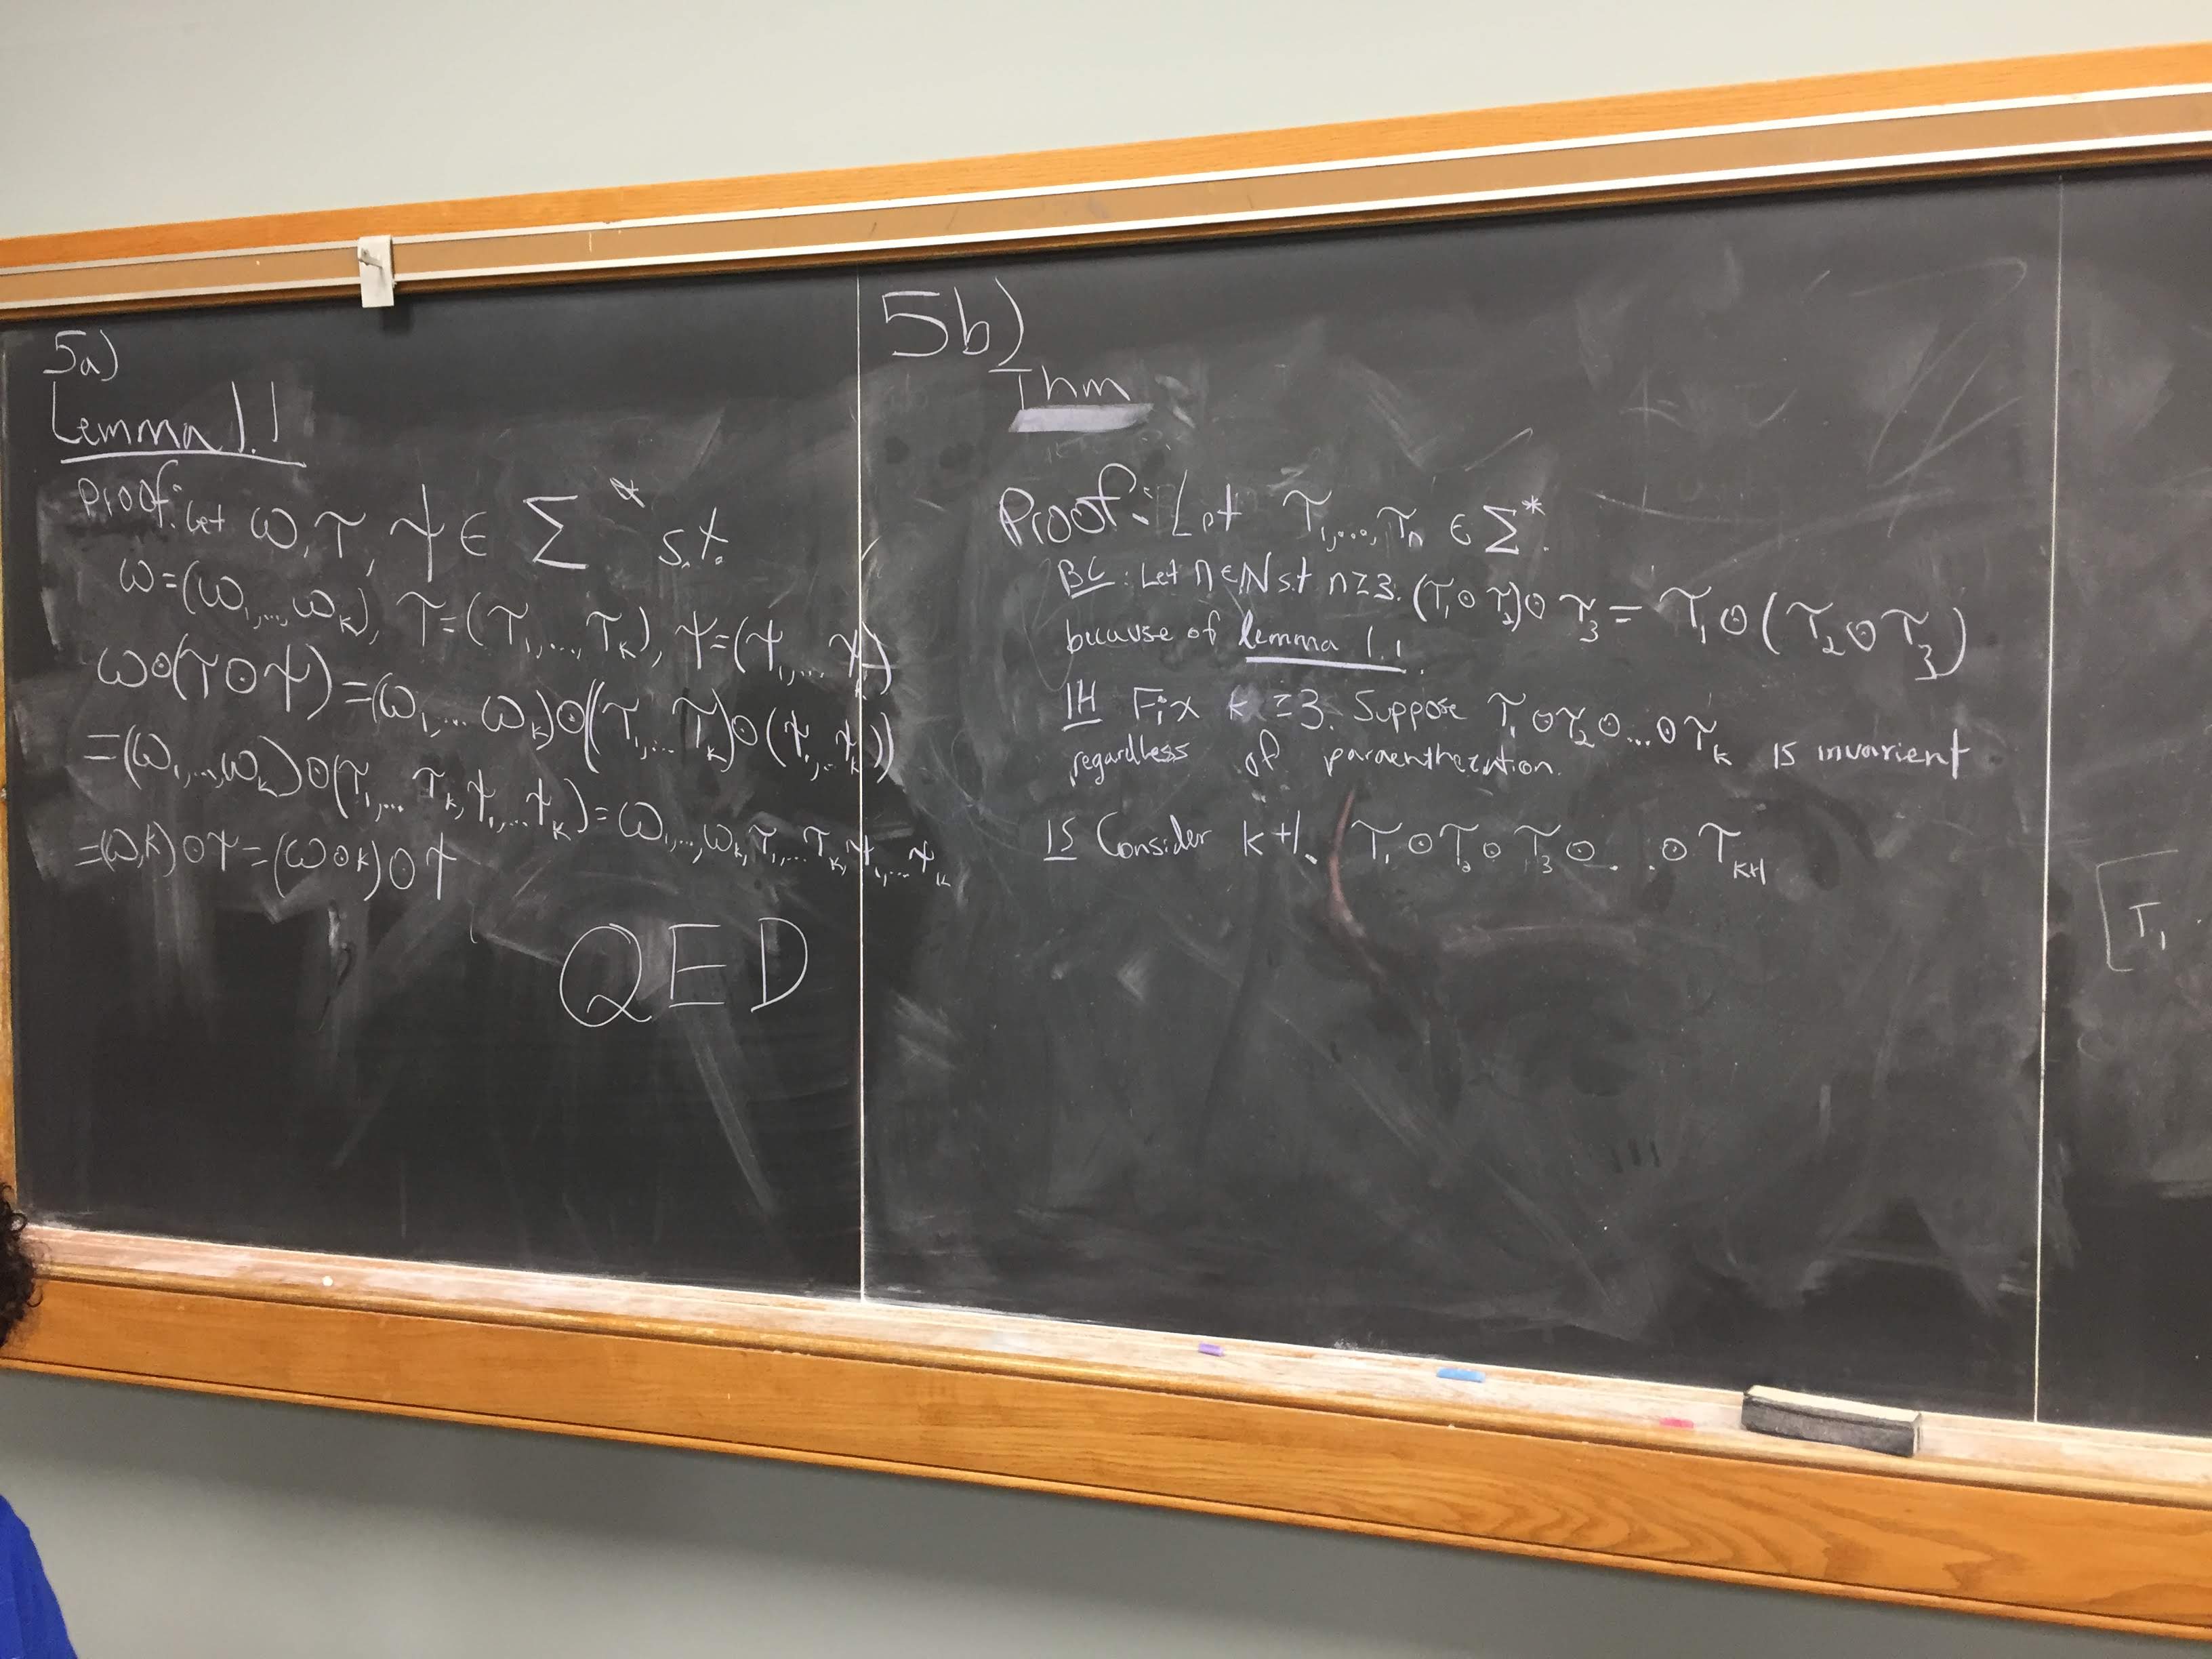 5a)
Lemma 1.1
Proof: Let ω, τ, ψ ∈ Σ* s.t.
ω=(ω₁,...,ωₖ), τ=(τ₁,...,τₖ), ψ=(ψ₁,...ψₖ)
ω⊙(τ⊙ψ)=(ω₁,...ωₖ)⊙((τ₁,...τₖ)⊙(ψ₁,..ψₖ))
=(ω₁,...,ωₖ)⊙(τ₁,...τₖ,ψ₁,...ψₖ)=ω₁,...,ωₖ,τ₁,...τₖ,ψ₁,...ψₖ
=(ω,k)⊙ψ=(ω⊙k)⊙ψ
QED
5b)
Thm
Proof: Let τ₁,...,τₙ ∈ Σ*.
BC: Let n∈ℕ s.t n≥3. (τ₁⊙τ₂)⊙τ₃=τ₁⊙(τ₂⊙τ₃)
because of lemma 1.1.
IH Fix k≥3. Suppose τ₁⊙τ₂⊙...⊙τₖ is invarient
regardless of paraenthezation.
IS Consider k+1. τ₁⊙τ₂⊙τ₃⊙...⊙τₖ₊₁
[τ₁